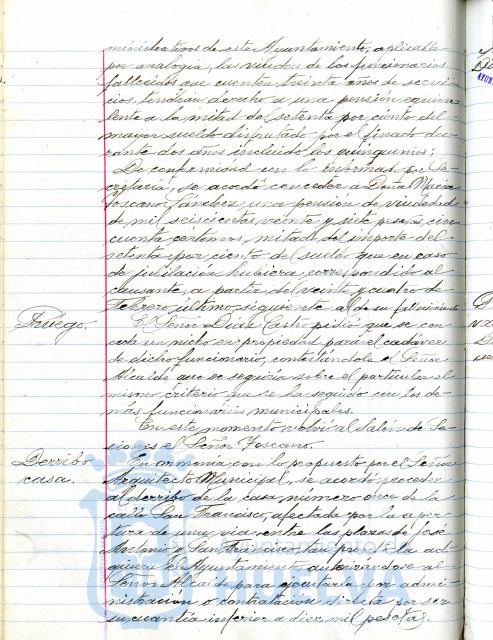 ministrativos de este Ayuntamiento, aplicable
por analogía, las viudas de los funcionarios
fallecidos que cuenten treinta años de servi-
cios, tendrán derecho a una pensión equiva-
lente a la mitad de setenta por ciento del
mayor sueldo disfrutado por el finado du-
rante dos años incluído los quinquenios;
De conformidad con lo informado por Se-
cretaría, se acordó conceder a Doña María
Toscano Sánchez una pensión de viudedad
de mil seiscientas veinte y siete pesetas, cin-
cuenta céntimos, mitad del importe del
setenta por ciento del sueldo que en caso
de jubilación hubiera correspondido al
causante, a partir del veinte y cuatro de
Febrero último, siguiente al de su fallecimiento
Ruego.
El Señor Duclós Castro pidió que se con-
ceda un nicho en propiedad para el cadáver
de dicho funcionario, contestándole el Señor
Alcalde que se seguiría sobre el particular el
mismo criterio que se ha seguido con los de-
más funcionarios municipales.
En este momento volvió al Salón de Se-
siones el Señor Toscano.
Derribo
casa.
En armonía con lo propuesto por el Señor
Arquitecto Municipal, se acordó proceder
al derribo de la casa, número once de la
calle San Francisco, afectada por la aper-
tura de una vía entre las plazas de José
Antonio y San Francisco, tan pronto la ad-
quiera el Ayuntamiento autorizándose al
Señor Alcalde para ejecutarla por admi-
nistración o contratación directa por ser
su cuantía inferior a diez mil pesetas.